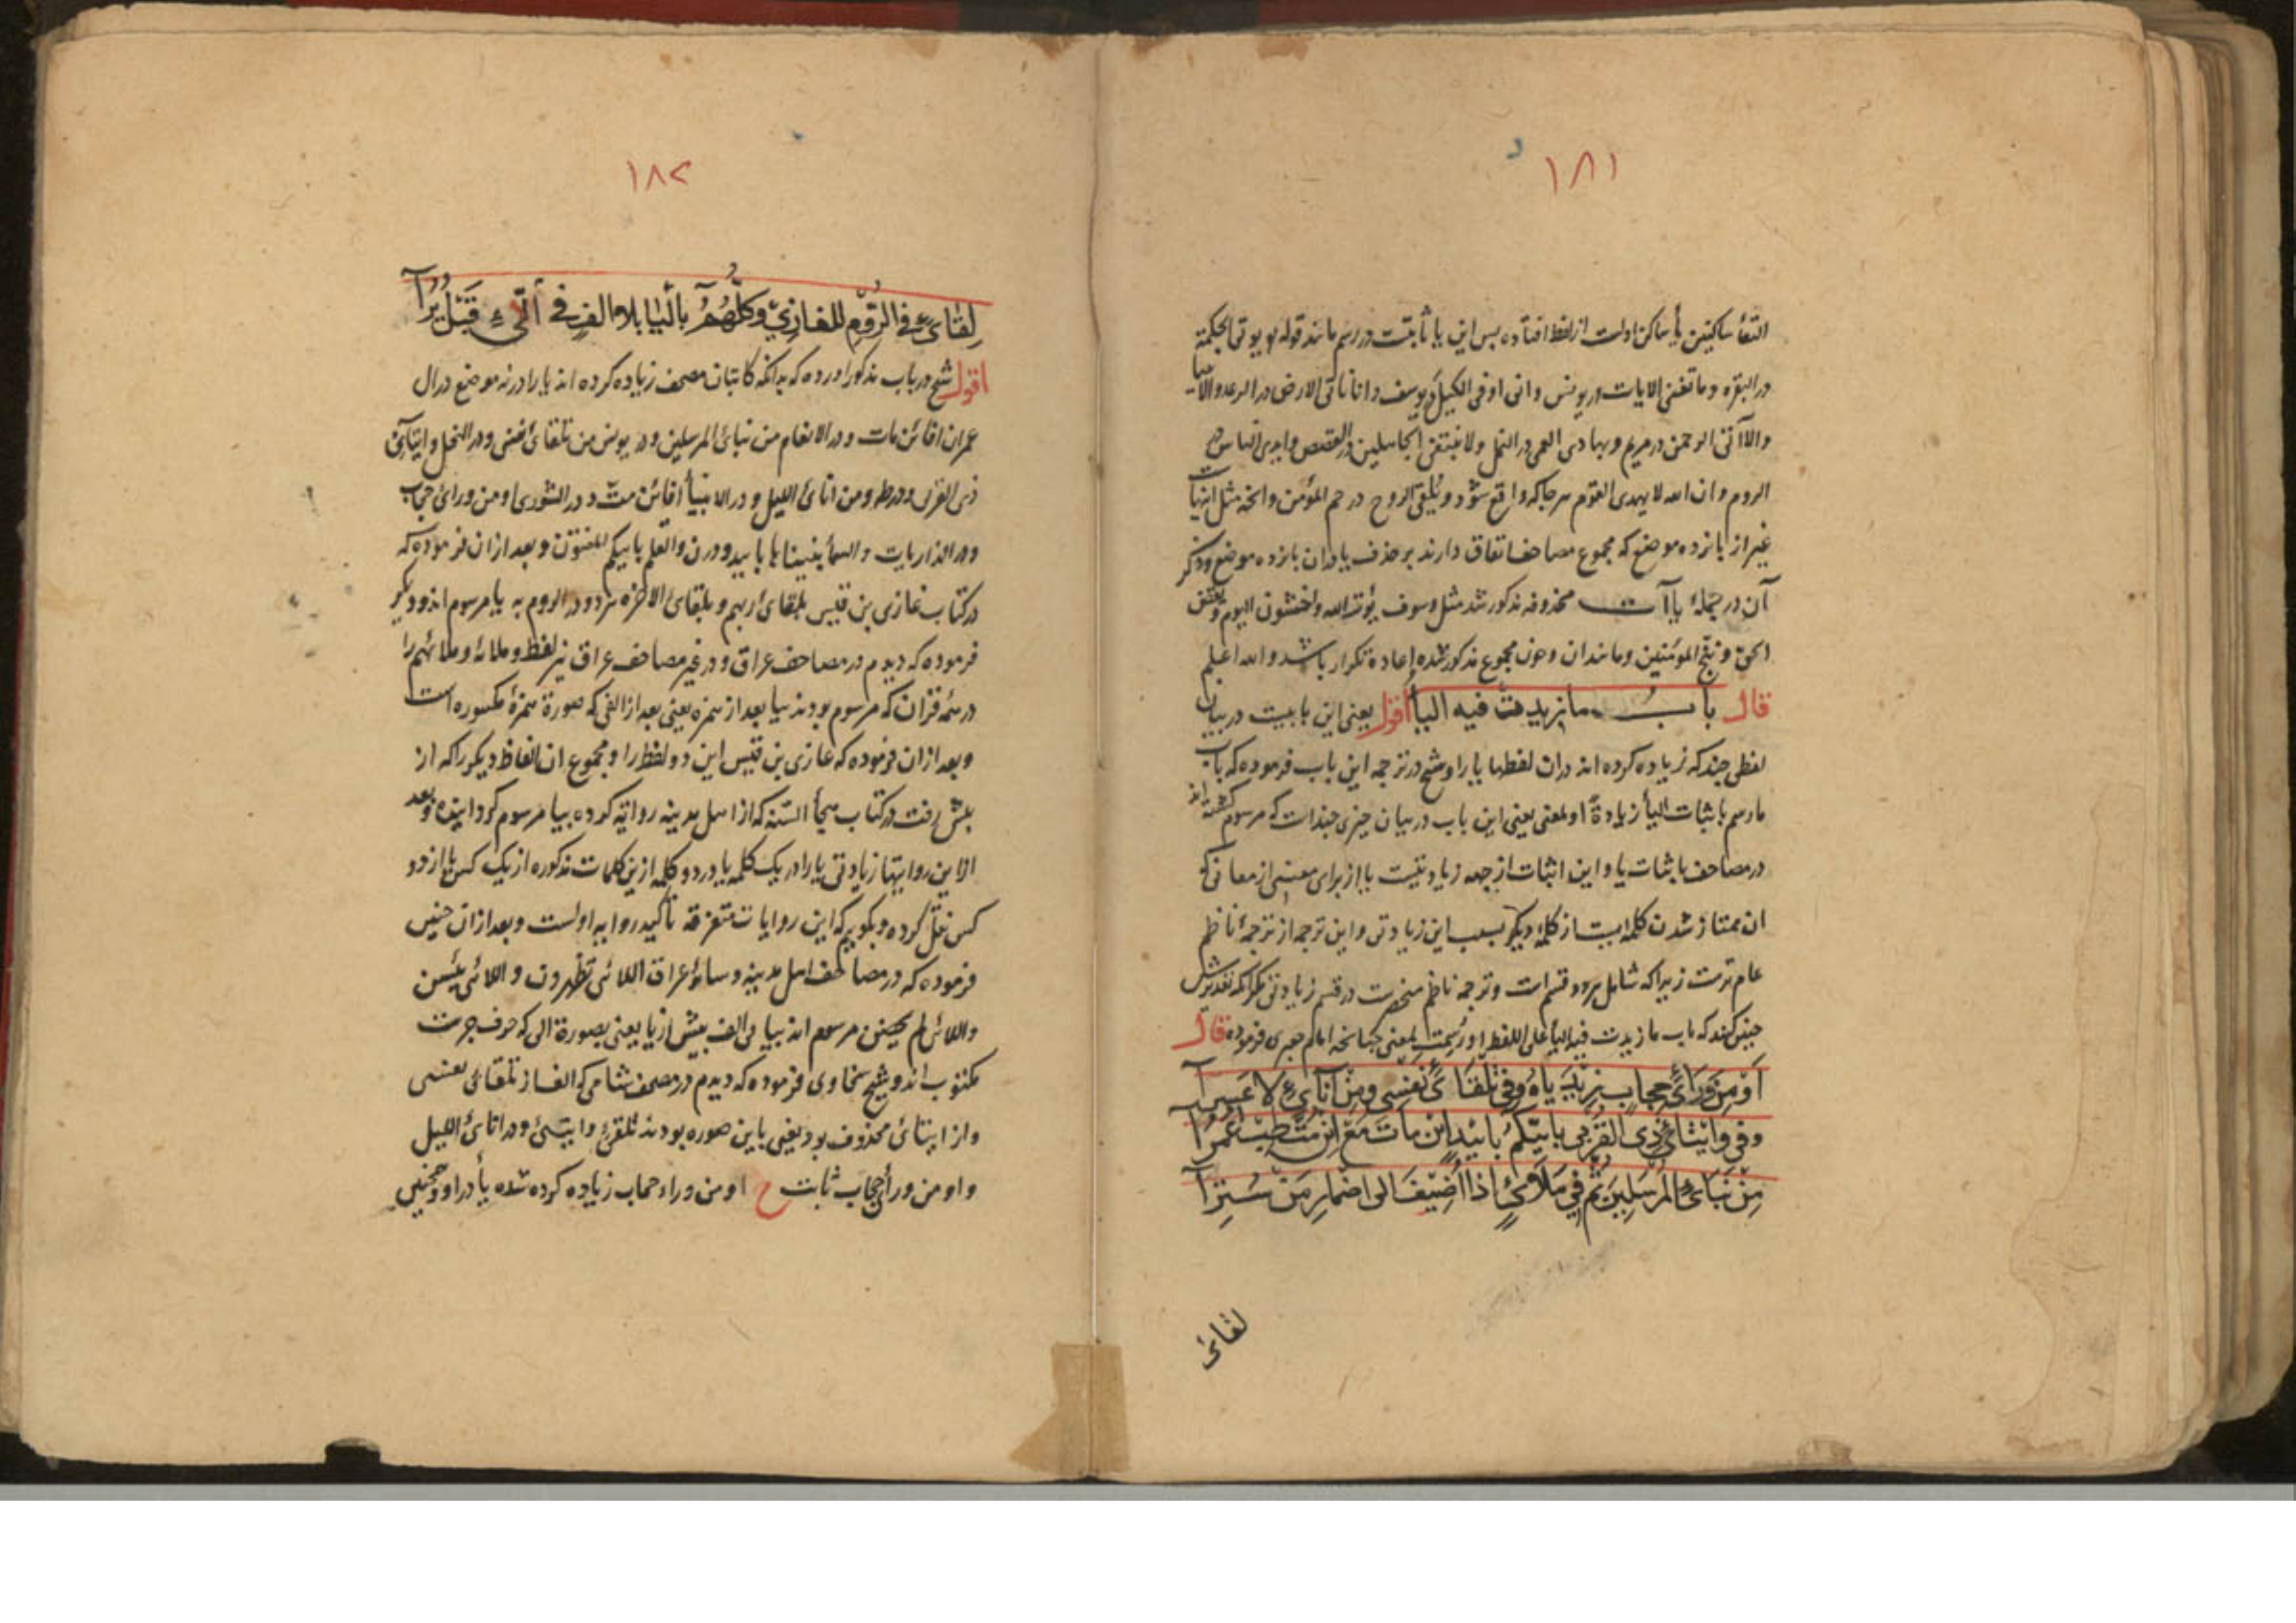 ١٨١
التقأ ساکنین یأ ساکن اولست از لفظ افتاده بس این یا ثابتست در رسم مانند قوله یوتی الحکمة
در البقره وما تغنی الایات در یونس وانی اوفی الکیل در یوسف وانا ناتی الارض در الرعد والانبیا
والا آتی الرحمن در مریم وبهادی العمی در النمل ولا نبتغی الجاهلین در القصص وایدی الناس در
الروم وان الله لا یهدی القوم هرجا که واقع شود ویلقی الروح در حم المؤمن وانچه مثل اینهاست
غیر از پانزده موضع که مجموع مصاحف اتفاق دارند بر حذف یا دران پانزده موضع وذکر
آن در جملهٔ یاآت محذوفه مذکور شد مثل وسوف یؤت الله واخشون الیوم ویقض
الحق وننج المؤمنین ومانند ان وچون مجموع مذکور شده اعاده تکرار باشد والله اعلم
قال باب ما زیدت فیه الیأ اقول یعنی این بابیست در بیان
لفظی چند که زیاده کرده اند دران لفظها یا را وشیخ در ترجمه این باب فرموده که باب
ما رسم باثبات الیأ زیادةً او لمعنی یعنی این باب در بیان چیزی چندات که مرسوم کشته اند
در مصاحف باثبات یا واین اثبات از جهه زیادتیست یا از برای معنیی از معانی که
ان ممتاز شدن کلمه ایست از کلمهٔ دیگر بسبب این زیادتی واین ترجمه از ترجمهٔ ناظم
عام ترست زیراکه شامل هردو قسم است وترجمه ناظم منحصرست در قسم زیادتی مکر انکه تقدیرش
چنین کنند که باب ما زیدت فیه الیأ علی اللفظ او رسمت لمعنی چنانچه امام جعبری فرموده قال
اَوْ مِنْ وَرَائِ حِجَابٍ زِيْدَ يَاهُ وَفِي تِلْقَائِ نَفْسِي وَمِنْ آنَائِ لَا عَسِرَا
وفي وايتائ ذي القربى باييكم بأييد ان مات مع ان مت طب عمرا
مِنْ نَبَائِ المُرْسَلِينَ ثُمَّ فِي مَلَائٍ اذا اُضِيْفَ الى اضمار مَنْ سُتِرَا
لقائ
١٨٢
لِقَائِ في الرُّوْمِ للغازيّ وكلُّهُمُ بالْيَا بلا الفٍ في اللّائِ قَبْلُ يُرَا
اقول شیخ در باب مذکور اورده که بدانکه کاتبان مصحف زیاده کرده اند یا را در نه موضع در ال
عمران افائن مات ودر الانعام من نبائ المرسلین ودر یونس من تلقائ نفسی ودر النحل وایتآئ
ذی القربی ودر طه ومن انائ اللیل ودر الانبیأ افائن متّ ودر الشوری او من ورائ حجاب
ودر الذاریات والسمأ بنیناها باییید ودر ن والقلم باییکم المفتون وبعد ازان فرموده که
در کتاب غازی بن قیس بلقائ ربهم ولقائ الاخره هردو در الروم به یا مرسوم اند ودیکر
فرموده که دیدم در مصاحف عراق ودر غیر مصاحف عراق نیز لفظ وملائه وملائهم را
در همه قران که مرسوم بودند بیا بعد از همزه یعنی بعد از الفی که صورة همزهٔ مکسوره است
وبعد ازان فرموده که غازی بن قیس این دو لفظ را ومجموع ان الفاظ دیکر را که از
پیش رفت در کتاب هجأ السنه که از اهل مدینه روایة کرده بیا مرسوم کردانیده وبعد
ازاین روایتها زیادتی یا را در یک کلمه یا در دو کلمه ازین کلمات مذکوره از یک کس یا از دو
کس نقل کرده وبکوییم که این روایات متفرقه تأکید روایه اولست وبعد ازان چنین
فرموده که در مصاحف اهل مدینه وسائر عراق اللائی تظهرون واللائی یئسن
واللائی لم یحضن مرسوم اند بیا بی الف پیش از یا یعنی بصورة الی که حرف جرست
مکتوب اند وشیخ سخاوی فرموده که دیدم در مصحف شامی که الف از تلقائ نفسی
واز ایتائ محذوف بود یعنی باین صوره بودند تلقئ وایتئ ودر انائ اللیل
واو من ورأئ حجاب ثابت ح او من وراء حجاب زیاده کرده شده یأ در او وهمچنین